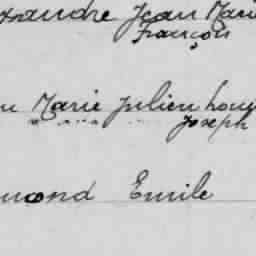 xandre Jean Mari
François
u Marie Julien Loui
Joseph
mond Emile